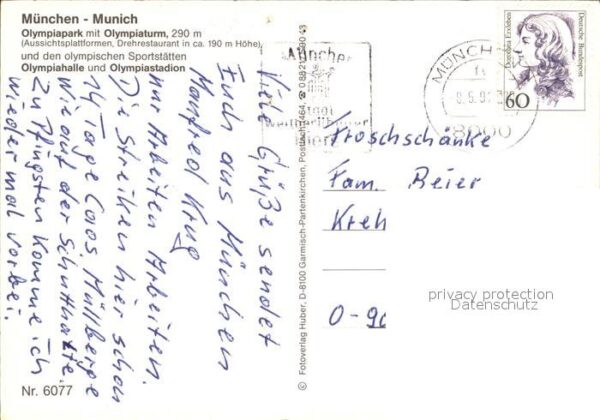 München - Munich
Olympiapark mit Olympiaturm, 290 m
(Aussichtsplattformen, Drehrestaurant in ca. 190 m Höhe),
und den olympischen Sportstätten
Olympiahalle und Olympiastadion
Viele Grüße sendet
Euch aus München
Manfred Krug
nur Arbeiten Arbeiten.
Die Streiken hier schon
14 Tage Caos Müllberge
wie auf der Schutthalte.
Zu Pfingsten komme ich
wieder mal vorbei.
Nr. 6077
© Fotoverlag Huber, D-8100 Garmisch-Partenkirchen, Postfach
Münchner
MÜNCH
8000
60
Deutsche Bundespost
Froschschänke
Fam. Beier
Kreh
O-90
privacy protection
Datenschutz